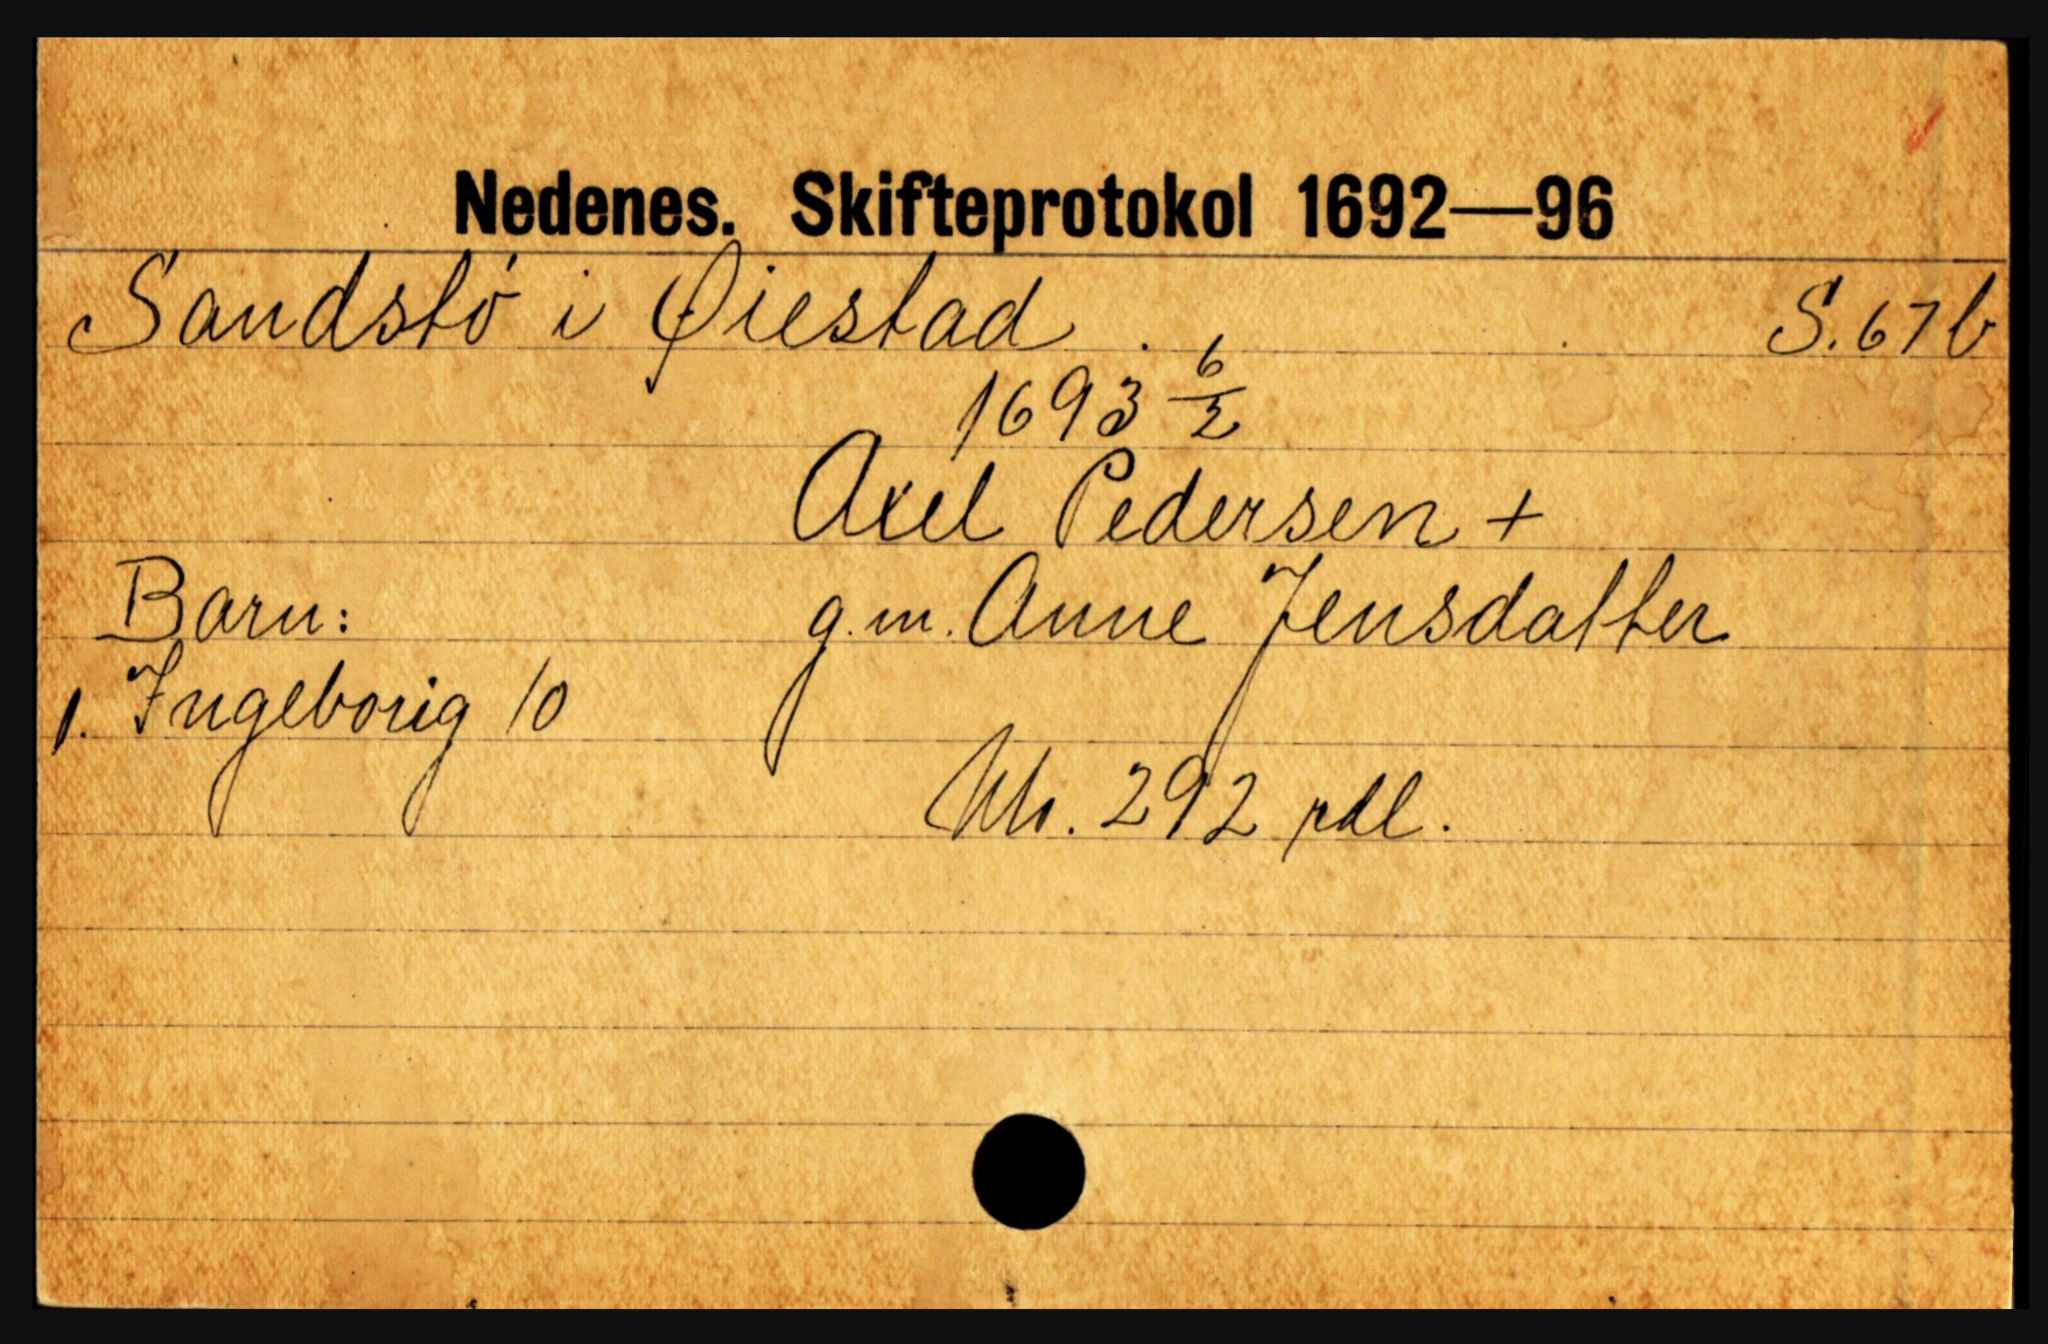 Nedenes. Skifteprotokol 1692—96
Sandstö i Øiestad. S. 67b
1693 6/3
Axel Pedersen +
Barn: g. m. Anne Jensdatter
1. Ingeborig 10
292 rdl.